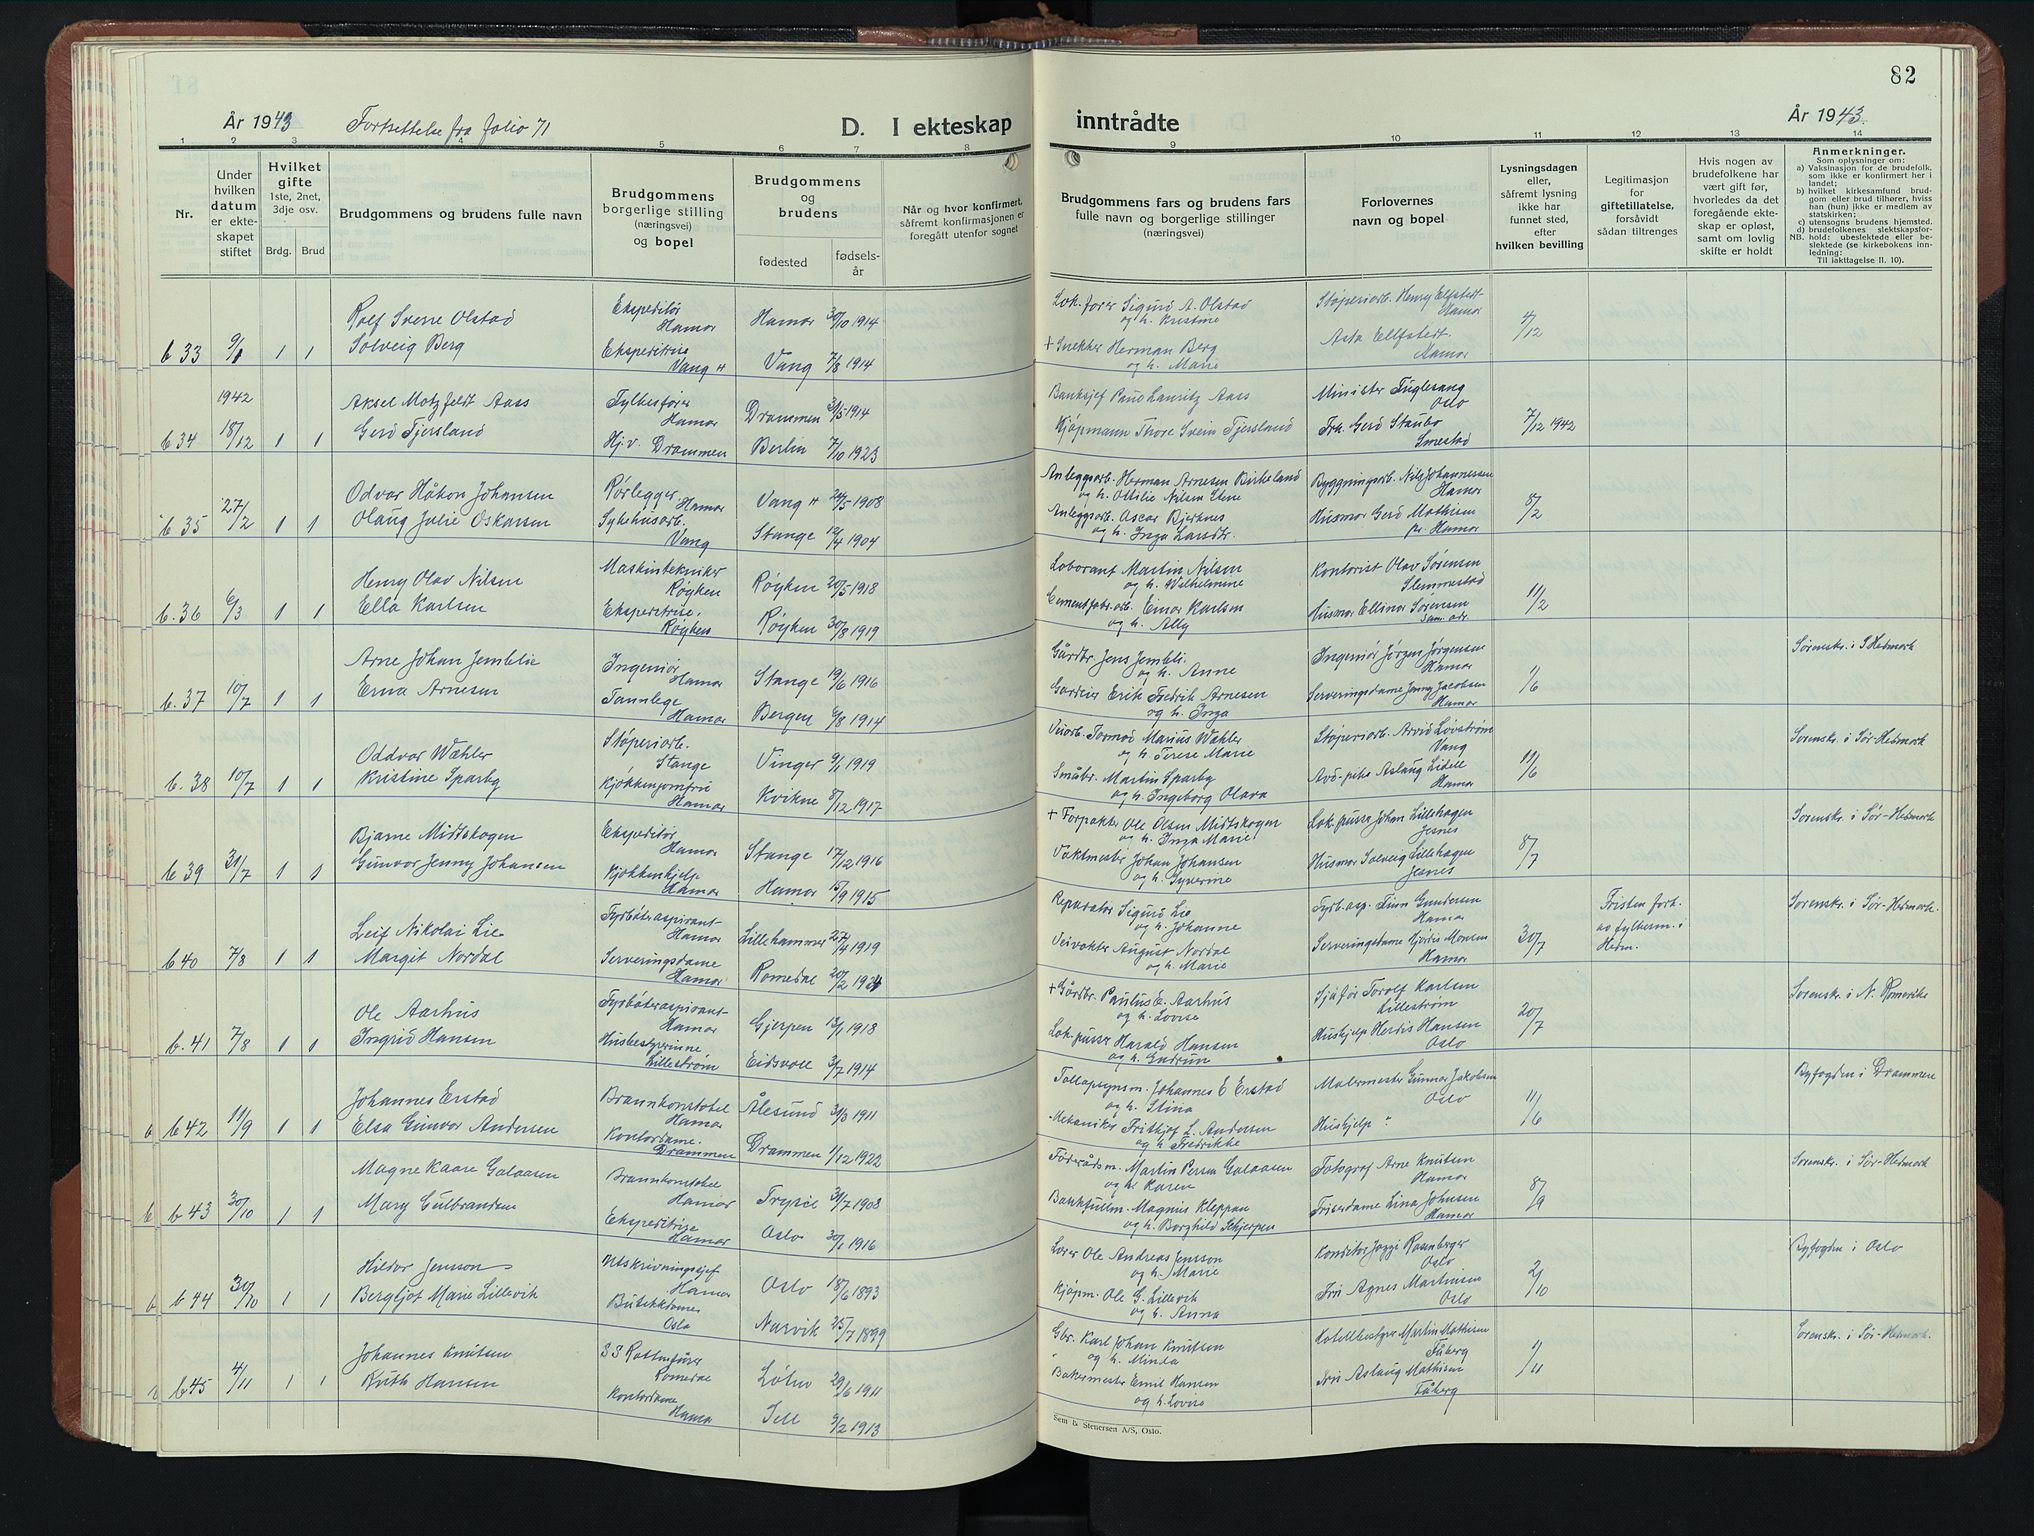 82
År 1943 Fortsettelse fra folio 71 D. I ekteskap inntrådte År 1943.
1 2 3 4 5 6 7 8 9 10 11 12 13 14
Nr.
Under hvilken datum er ekteskapet stiftet
Hvilket gifte 1ste, 2net, 3dje osv.
Brdg. Brud
Brudgommens og brudens fulle navn
Brudgommens borgerlige stilling (næringsvei) og bopel
Brudgommens og brudens
fødested fødselsår
Når og hvor konfirmert, såfremt konfirmasjonen er foregått utenfor sognet
Brudgommens fars og brudens fars fulle navn og borgerlige stillinger (næringsvei)
Forlovernes navn og bopel
Lysningsdagen eller, såfremt lysning ikke har funnet sted, efter hvilken bevilling
Legitimasjon for giftetillatelse, forsåvidt sådan tiltrenges
Hvis nogen av brudefolkene har vært gift før, hvorledes da det foregående ekteskap er opløst, samt om lovlig skifte er holdt
Anmerkninger.
Som oplysninger om:
a) Vaksinasjon for de brudefolk, som ikke er konfirmert her i landet;
b) hvilket kirkesamfund brudgom eller brud tilhører, hvis han (hun) ikke er medlem av statskirken;
c) utensogns brudens hjemsted.
d) brudefolkenes slektskapsforhold: ubeslektede eller beslektede (se kirkebokens innledning:
NB. Til iakttagelse II. 10).
b 33 9/1 1 1
Rolf Sverre Olstad
Solveig Berg
Ekspeditør
Hamar
Ekspeditrise
Vang H
Hamar 30/10 1914
Vang 7/8 1914
Lok.fører Sigurd A. Olstad
og h. Kristine
+ Snekker Herman Berg
og h. Marie
Støperiarb. Henry Elfstedt
Hamar
Asta Elfstedt.
Hamar
4/12
1942
b 34 18/12 1 1
Aksel Motzfeldt Aass
Gerd Fjersland
Fylkesfører
Hamar
Hj.v. Drammen
Drammen 31/5 1914
Berlin 7/10 1923
Banksjef Paul Lauritz Aass
Kjøpmann Thore Svein Fjersland
Minister Fuglesang
Oslo
Frk. Gerd Staubo
Smestad
7/12 1942
b 35 27/2 1 1
Odvar Håkon Johansen
Olaug Julie Oskarsen
Rørlegger
Hamar
Sykehusarb.
Vang
Vang H 24/5 1908
Stange 12/4 1904
Anleggsarb. Herman Arnesen Birkeland
og h. Ottilie Nilsen Stene
Anleggsarb. Oscar Bjerknes
og h. Inga Larsdtr.
Bygningsarb. Nils Johannessen
Hamar
Husmor Gerd Mathisen
pr. Hamar
8/2
b.36 6/3 1 1
Henry Olav Nilsen
Ella Karlsen
Maskintekniker
Røyken
Ekspeditrise.
Røyken
Røyken 20/5 1918
Røyken 30/8 1919
Laborant Martin Nilsen
og h. Wilhelmine
Cementfabr.arb. Einar Karlsen
og h. Ally
Kontorist Olav Sørensen
Slemmestad
Husmor Ellinor Sørensen
sam. adr.
11/2
b.37 10/7 1 1
Arne Johan Jemblie
Erna Arnesen
Ingeniør
Hamar
Tannlege
Hamar
Stange 19/6 1916
Bergen 6/8 1914
Gårdbr. Jens Jembli.
og h. Anne
Gartner Erik Fredrik Arnesen
og h. Inga
Ingeniør Jørgen Jørgensen
Hamar
Serveringsdame Jenny Jacobsen
Hamar
1/6
Sorenskr. i S Hedmark
b.38 10/7 1 1
Oddvar Wæhler
Kristine Sparby
Støperiarb.
Stange
Kjøkkenjomfru
Hamar
Vinger 9/1 1919
Kvikne 8/12 1917
Veiarb. Tormod Marius Wæhler
og h. Terese Marie
Småbr. Martin Sparby
og h. Ingeborg Olava
Støperiarb. Arvid Løvstrøm
Vang
Avd-pike Aslaug Lidell
Hamar
11/6
Sorenskr. i Sør-Hedmark
b 39 31/7 1 1
Bjarne Midtskogen
Gunvor Jenny Johansen
Ekspeditør
Hamar
Kjøkkenhjelp
Hamar
Stange 17/12 1916
Hamar 15/9 1915
+ Forpakter Ole Olsen Midtskogen
og h. Inga Marie
Vaktmester Johan Johansen
og h. Syverine
Lok.pusser Johan Lillehagen
Jesnes
Husmor Solveig Lillehagen
Jesnes
8/7
Sorenskr. i Sør-Hedmark
b 40 7/8 1 1
Leif Nikolai Lie
Margit Nordal
Fyrbøteraspirant
Hamar
Serveringsdame
Hamar
Lillehammer 27/4 1919
Romedal 20/2 1921
Reparatør Sigurd Lie
og h. Johanne
Veivokter August Nordal
og h. Marie
Fyrb.asp. Finn Gundersen
Hamar
Serveringsdame Hjørdis Monsen
Hamar
30/7
Fristen fork.
av fylkesm. i
Hedm.
Sorenskr. i Sør-Hedmark.
b.41 7/8 1 1
Ole Aarhus
Ingrid Hansen
Fyrbøteraspirant
Hamar
Husbestyrerinne
Lillestrøm
Gjerpen 13/1 1918
Eidsvoll 3/7 1914
+ Gårdbr. Paulus E. Aarhus
og h. Lovise
Lok.pusser Harald Hansen
og h. Gudrun
Sjåfør Torolf Karlsen
Lillestrøm
Hushjelp Herdis Hansen
Oslo
20/7
Sorenskr. i N. Romerike
b 42 11/9 1 1
Johannes Erstad
Elsa Gunvor Andersen
Brannkonstabel
Hamar
Kontordame.
Drammen
Ålesund 31/3 1911
Drammen 1/12 1922
Tolloppsynsm. Johannes E Erstad
og h. Stina
Mekaniker Frithjof L. Andersen
og h. Fredrikke
Malermester Gunnar Jakobsen
Oslo
Hushjelp "
11/6
Byfogden i Drammen
b 43 30/10 1 1
Magne Kaare Galaasen
Mary Gulbrandsen
Brannkonstabel
Hamar
Ekspeditrise
Hamar
Trysil 31/7 1908
Oslo 30/1 1916
Føderådsm. Martin Persen Galaasen
og h. Karen
Bankfullm. Magnus Kleppan
og h. Borghild Schjerpen
Fotograf Arne Knutsen
Hamar
Friserdame Lina Johnsen
Hamar
8/9
Sorenskr. i Sør-Hedmark
b 44 30/10 1 1
Hildor Jensson
Bergljot Marie Lillevik
Utskrivningssjef
Hamar
Butikkdame
Oslo
Oslo 18/6 1893
Narvik 25/7 1899
Lærer Ole Andreas Jensson
og h. Marie
Kjøpm. Ole G. Lillevik
og h. Anna
Konditor Jozzi Rosenberger
Oslo
Fru Agnes Martinsen
Oslo
2/10
Byfogden i Oslo
b 45 4/11 1 1
Johannes Knutsen
Ruth Hansen
SS Rottenfürer
Romedal
Kontordame
Hamar
Løten 29/6 1911
Sell 9/2 1913
Gbr. Karl Johan Knutsen
og h. Minda
Bakermester Emil Hansen
og h. Lovise
Hotellbestyrer Martin Mathisen
Fåberg
Fru Aslaug Mathisen
Fåberg
Sorenskr. i Sør-Hedmark.
Sem & Stenersen A/S, Oslo.